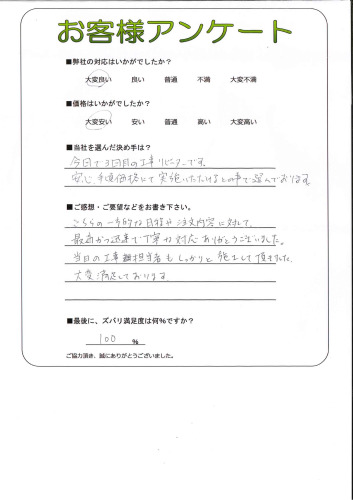 お客様アンケート
■弊社の対応はいかがでしたか?
大変良い 良い 普通 不満 大変不満
■価格はいかがでしたか?
大変安い 安い 普通 高い 大変高い
■当社を選んだ決め手は?
今回で3回目の工事リピーターです。
安心、手頃価格にて実施いただけるとの事で選んでおります。
■ご感想・ご要望などをお書き下さい。
こちらの一方的な日程や注文内容に対して、
最高かつ迅速で丁寧な対応ありがとうございました。
当日の工事担当者もしっかりと施工して頂きました。
大変満足しております。
■最後に、ズバリ満足度は何%ですか?
100 %
ご協力頂き、誠にありがとうございました。